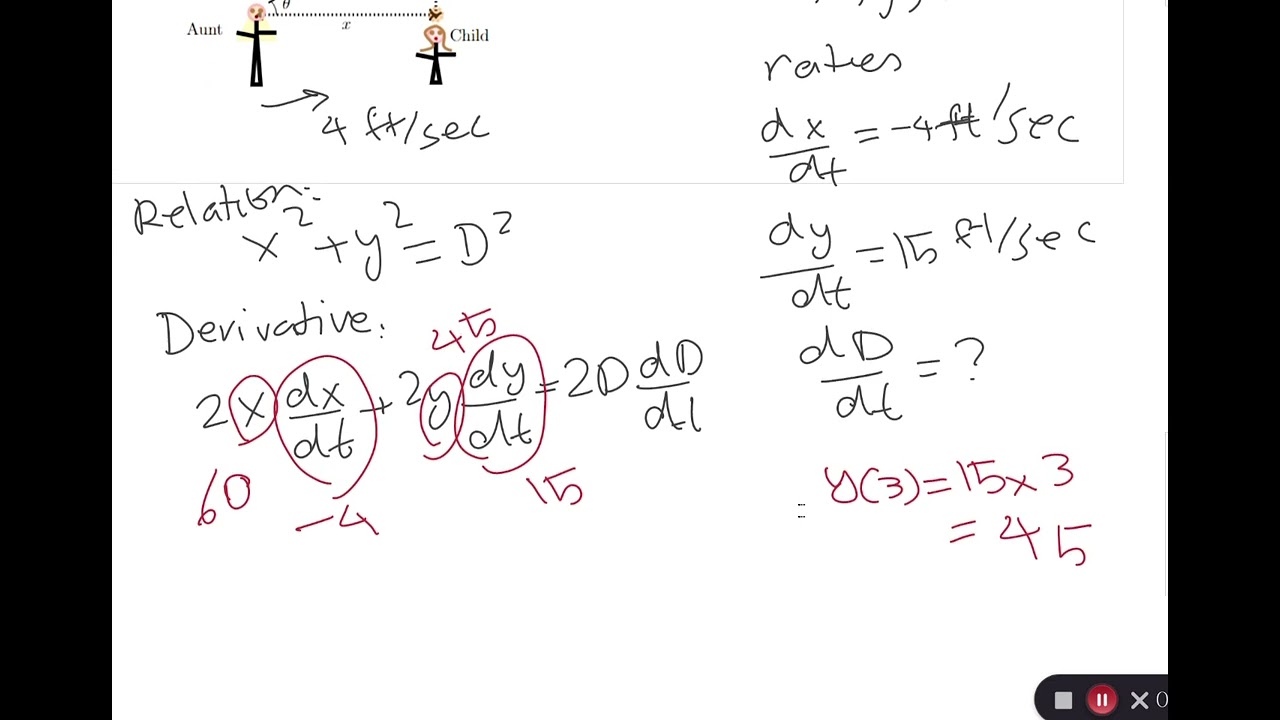 θ
Aunt
x
Child
4 ft/sec
rates
dx/dt = -4 ft/sec
Relation:
x² + y² = D²
dy/dt = 15 ft/sec
Derivative:
45
2x dx/dt + 2y dy/dt = 2D dD/dt
dD/dt = ?
60
-4
15
y(3) = 15 x 3
= 45